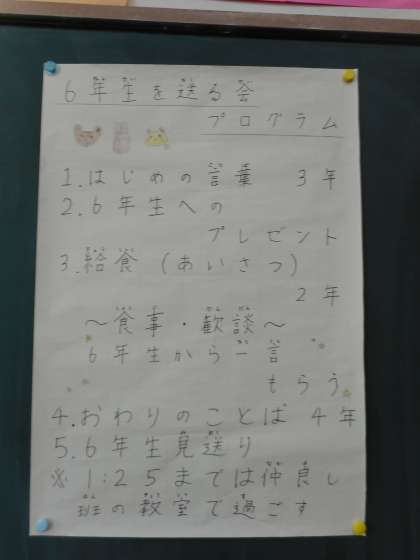 6年生を送る会
プログラム
1.はじめの言葉 3年
2.6年生への
プレゼント
3.給食(あいさつ)
2年
〜食事・歓談〜
6年生から一言
もらう
4.おわりのことば 4年
5.6年生見送り
※1:25までは仲良し
班の教室で過ごす